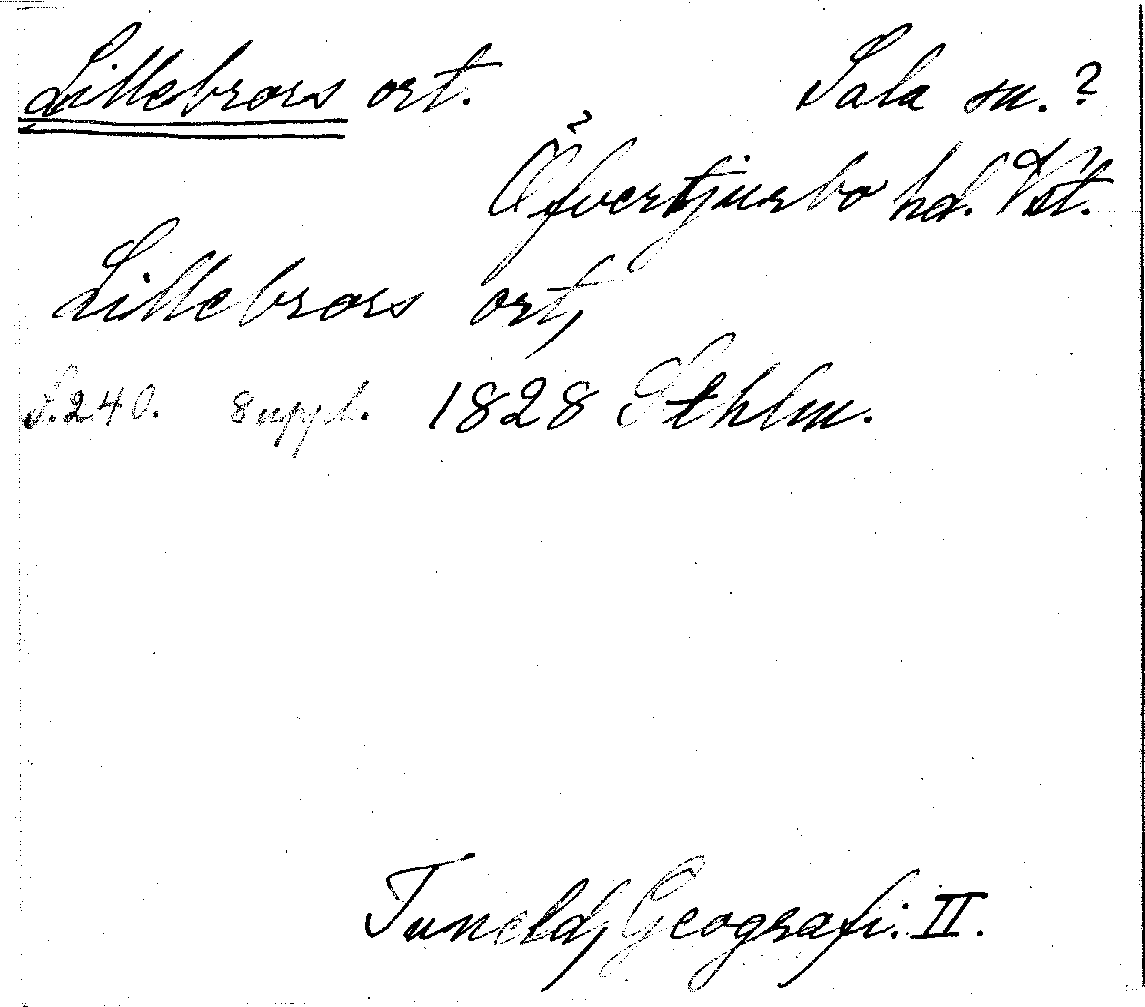 Lillebrors ort. Sala sn.?
Öfvertjurbo hd. Vst.
Lillebrors ort,
S. 240. Suppl. 1828 Sthlm.
Tuneld, Geografi. II.